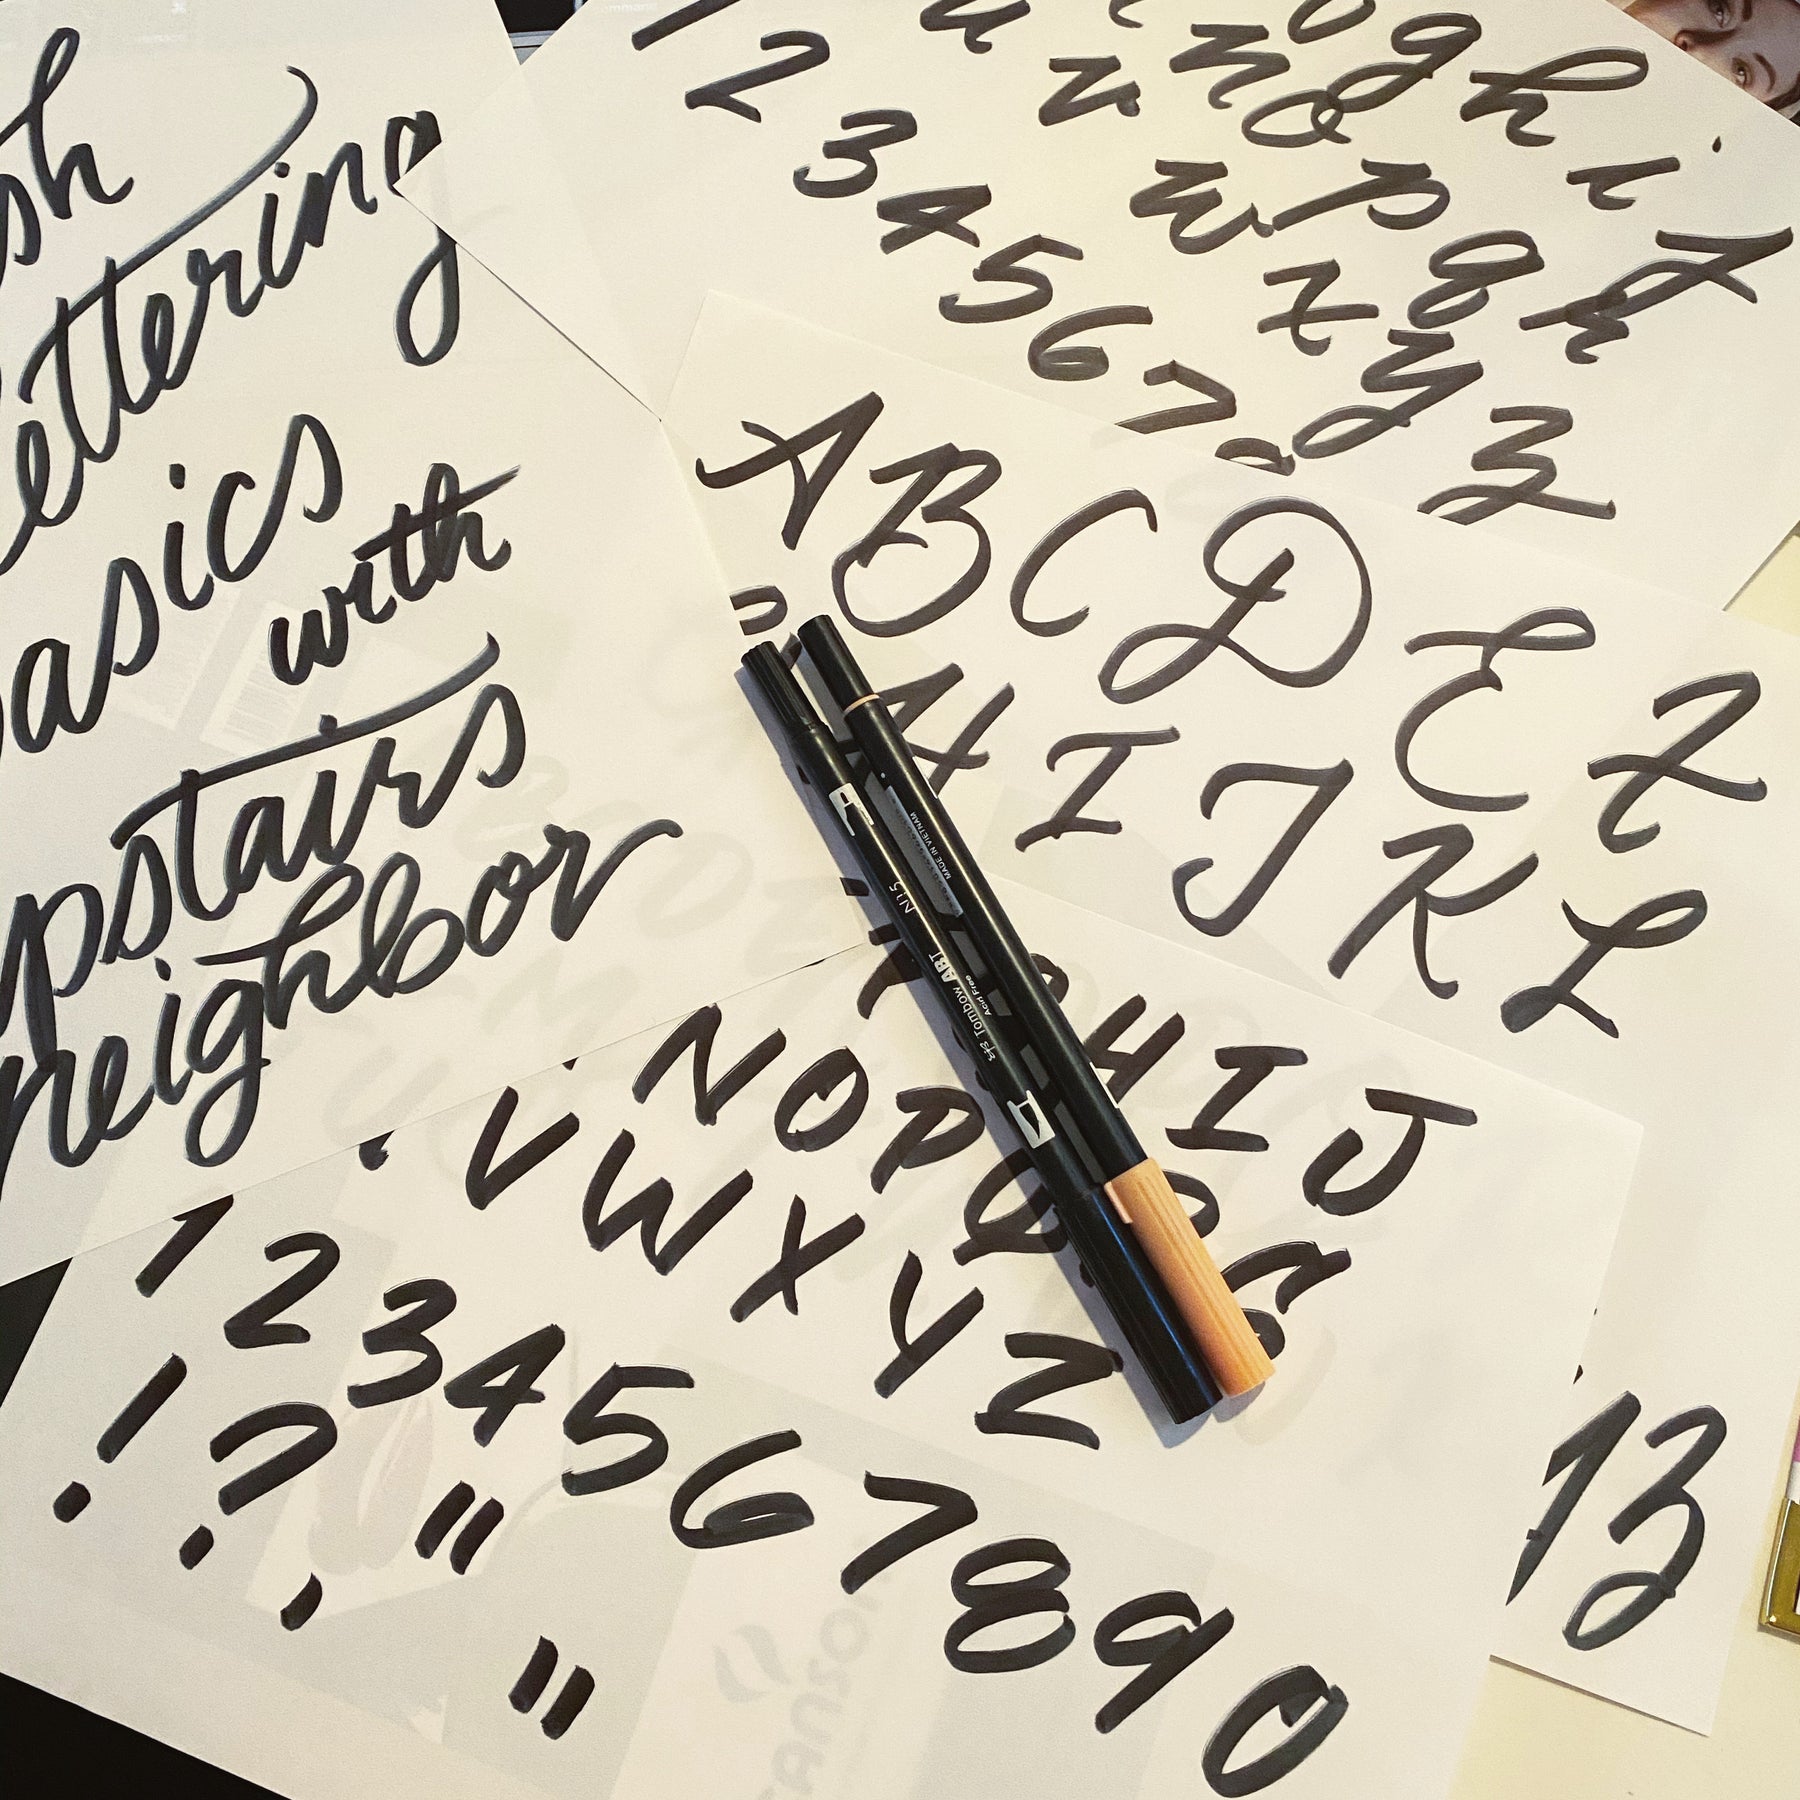 sh
lettering
basics
with
upstairs
neighbor
1 2 3 4 5 6 7
u v w x y z
n o p q
g h i
A B C D E
H I J K L
Z
H I J
N O P Q
V W X Y Z
1 2 3 4 5 6 7 8 9 0
! ? , " "
13
MADE IN VIETNAM
N15
Tombow ABT
Acid Free